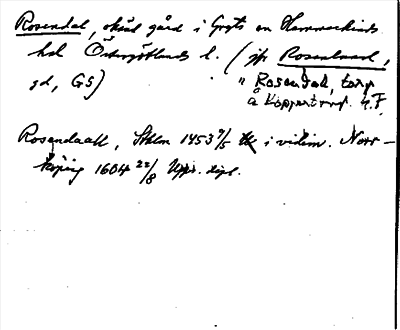 Rosendal, oksäl gård i Gryts sn Hammarkinds
hd Östergötlands l. (jfr Rosenlund,
gd, GS) " Rosendal, torp
å Koppartorp. n.F.
Rosendaall, Sthlm 1453 7/5 i vidim. Norr-
köping 1604 22/8 Upps. dipl.